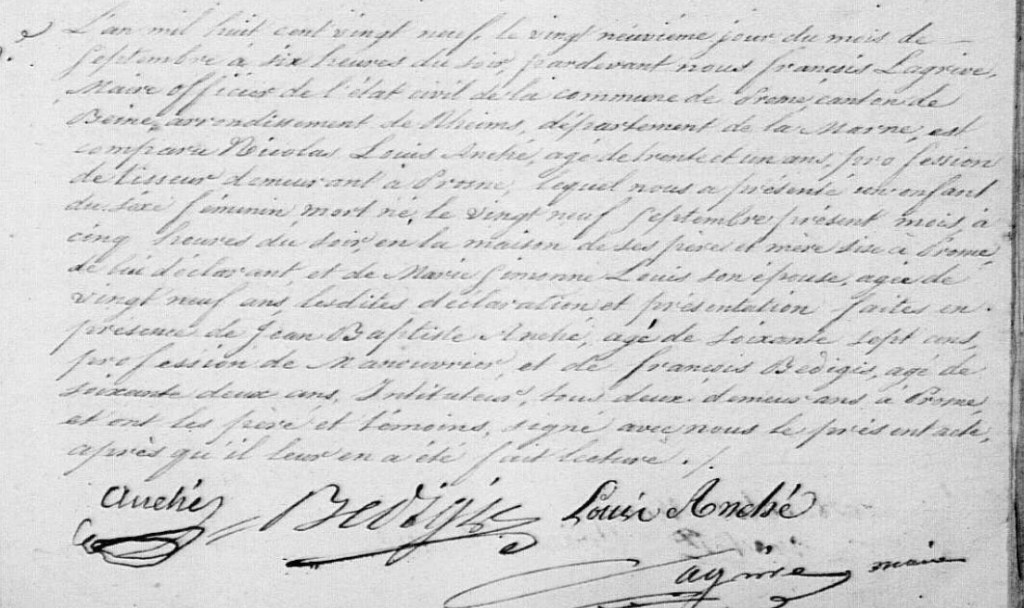 L'an mil huit cent vingt neuf, le vingt neuvième jour du mois de
Septembre à six heures du soir, pardevant nous françois Lagrive,
Maire officier de l'état civil de la commune de Prosne, canton de
Beine, arrondissement de Rheims, département de la Marne, est
comparu Nicolas Louis Anché, agé de trente et un ans, profession
de tisseur demeurant à Prosne, lequel nous a présenté un enfant
du sexe féminin mort né, le vingt neuf Septembre présent mois, à
cinq heures du soir, en la maison de ses père et mère sise à Prosne,
de lui déclarant, et de Marie Simonne Louis son épouse, agée de
vingt neuf ans, lesdites déclaration et présentation faites en
présence de Jean Baptiste Anché, agé de soixante sept ans,
profession de Manouvrier, et de françois Bédigis, agé de
soixante deux ans, Instituteur, tous deux demeurans à Prosne,
et ont les père et témoins, signé avec nous le présent acte,
après qu'il leur en a été fait lecture ./.
Anché Bedigis Louis Anché
Lagrive maire